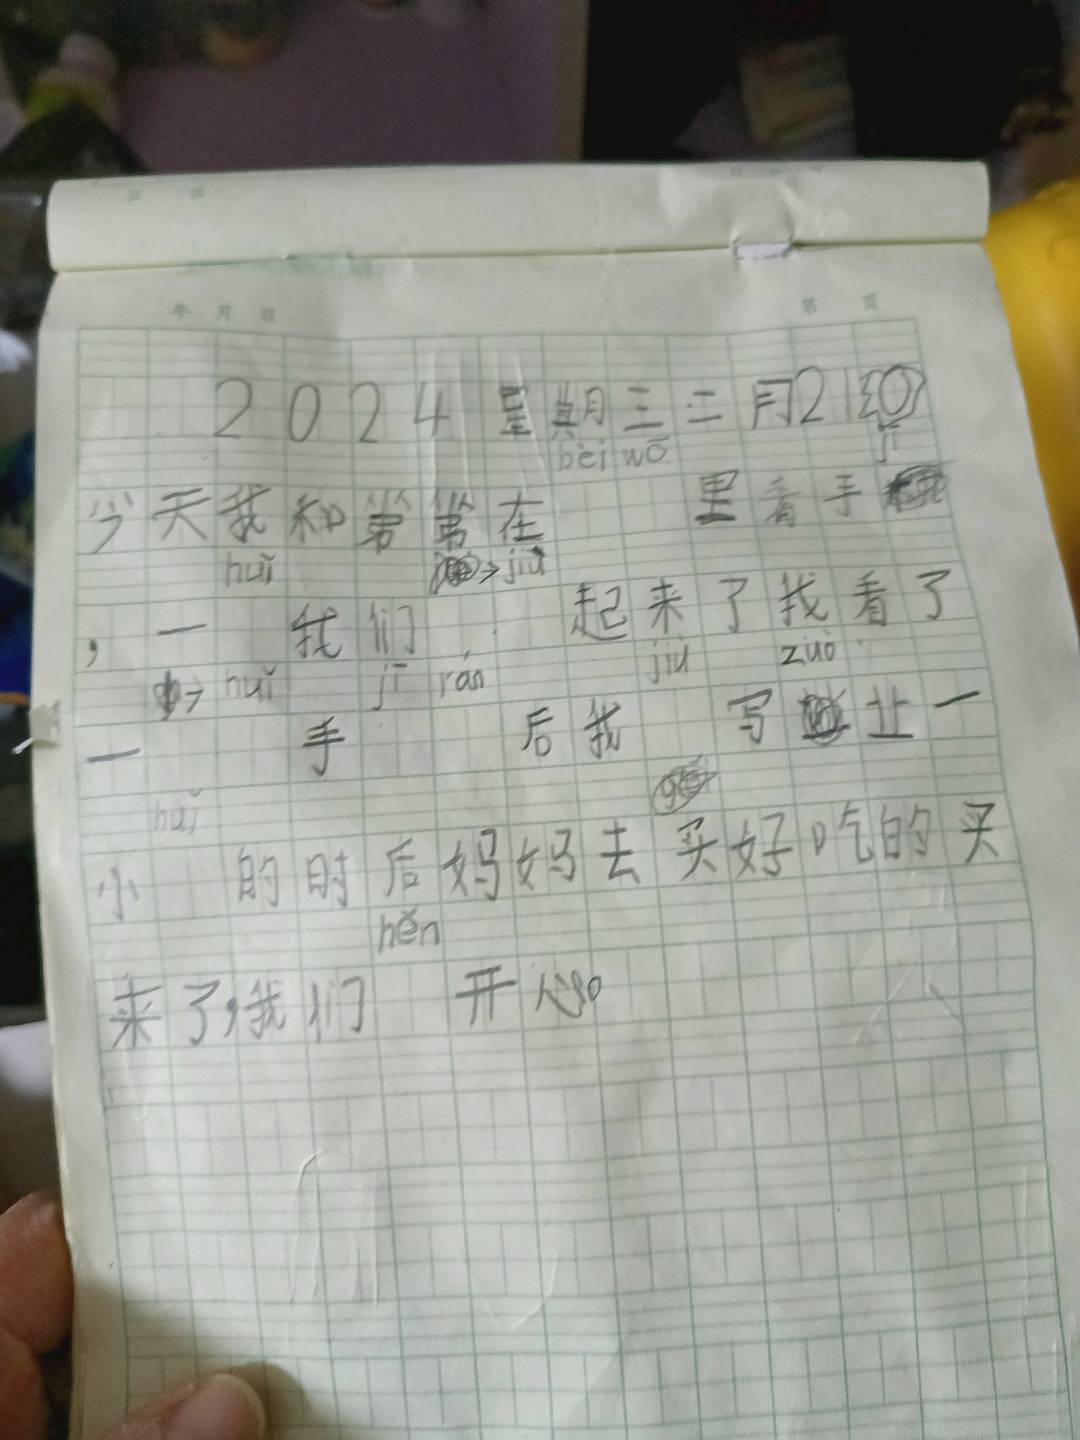 年 月 日 第 页
2024星期三二月21
bèi wō jī
今天我和弟弟在 里看手
huǐ jiù
，一 我们 起来了我看了
huǐ jī rán jiù zuò
一 手 后我 写 止一
huǐ
小 的时后妈妈去买好吃的买
hěn
来了，我们 开心